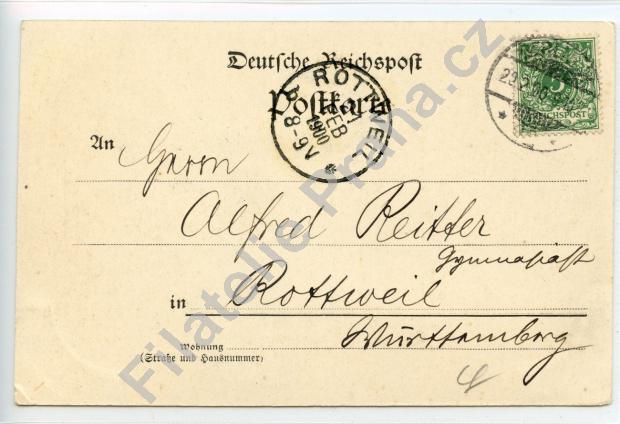 Deutsche Reichspost
Postkarte
ROTTWEIL
FEB
1900
8-9V
REICHSPOST
An Herrn
Alfred Reitter
Gymnasiast
in Rottweil
Württemberg
Wohnung
(Straße und Hausnummer)
Filatelie Praha.cz